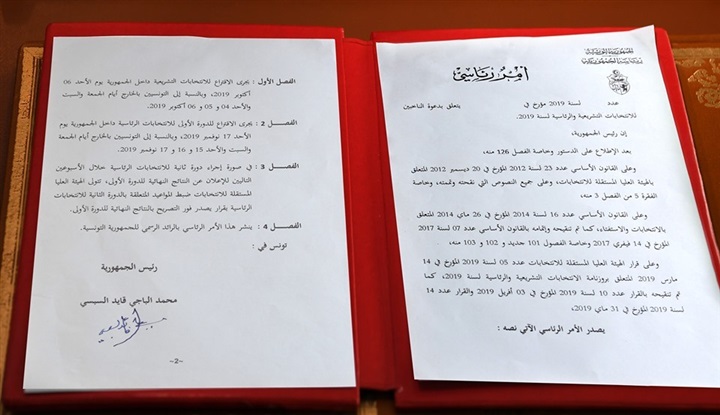 الجمهورية التونسية
رئاسة الجمهورية
أمر رئاسي
عدد لسنة 2019 مؤرخ في يتعلق بدعوة الناخبين
للانتخابات التشريعية والرئاسية لسنة 2019.
إن رئيس الجمهورية،
بعد الإطلاع على الدستور وخاصة الفصل 126 منه،
وعلى القانون الأساسي عدد 23 لسنة 2012 المؤرخ في 20 ديسمبر 2012 المتعلق
بالهيئة العليا المستقلة للانتخابات، وعلى جميع النصوص التي نقحته وتممته، وخاصة
الفقرة 5 من الفصل 3 منه،
وعلى القانون الأساسي عدد 16 لسنة 2014 المؤرخ في 26 ماي 2014 المتعلق
بالانتخابات والاستفتاء، كما تم تنقيحه وإتمامه بالقانون الأساسي عدد 07 لسنة 2017
المؤرخ في 14 فيفري 2017 وخاصة الفصول 101 جديد و 102 و 103 منه،
وعلى قرار الهيئة العليا المستقلة للانتخابات عدد 05 لسنة 2019 المؤرخ في 14
مارس 2019 المتعلق بروزنامة الانتخابات التشريعية والرئاسية لسنة 2019، كما
تم تنقيحه بالقرار عدد 10 لسنة 2019 المؤرخ في 03 أفريل 2019 والقرار عدد 14
لسنة 2019 المؤرخ في 31 ماي 2019،
يصدر الأمر الرئاسي الآتي نصه :
الفصل الأول : يجرى الاقتراع للانتخابات التشريعية داخل الجمهورية يوم الأحد 06
أكتوبر 2019، وبالنسبة إلى التونسيين بالخارج أيام الجمعة والسبت
والأحد 04 و 05 و 06 أكتوبر 2019.
الفصل 2 : يجرى الاقتراع للدورة الأولى للانتخابات الرئاسية داخل الجمهورية يوم
الأحد 17 نوفمبر 2019، وبالنسبة إلى التونسيين بالخارج أيام الجمعة
والسبت والأحد 15 و 16 و 17 نوفمبر 2019.
الفصل 3 : في صورة إجراء دورة ثانية للانتخابات الرئاسية خلال الأسبوعين
التاليين للإعلان عن النتائج النهائية للدورة الأولى، تتولى الهيئة العليا
المستقلة للانتخابات ضبط المواعيد المتعلقة بالدورة الثانية للانتخابات
الرئاسية بقرار يصدر فور التصريح بالنتائج النهائية للدورة الأولى.
الفصل 4 : ينشر هذا الأمر الرئاسي بالرائد الرسمي للجمهورية التونسية.
تونس في :
رئيس الجمهورية
محمد الباجي قايد السبسي
–2–